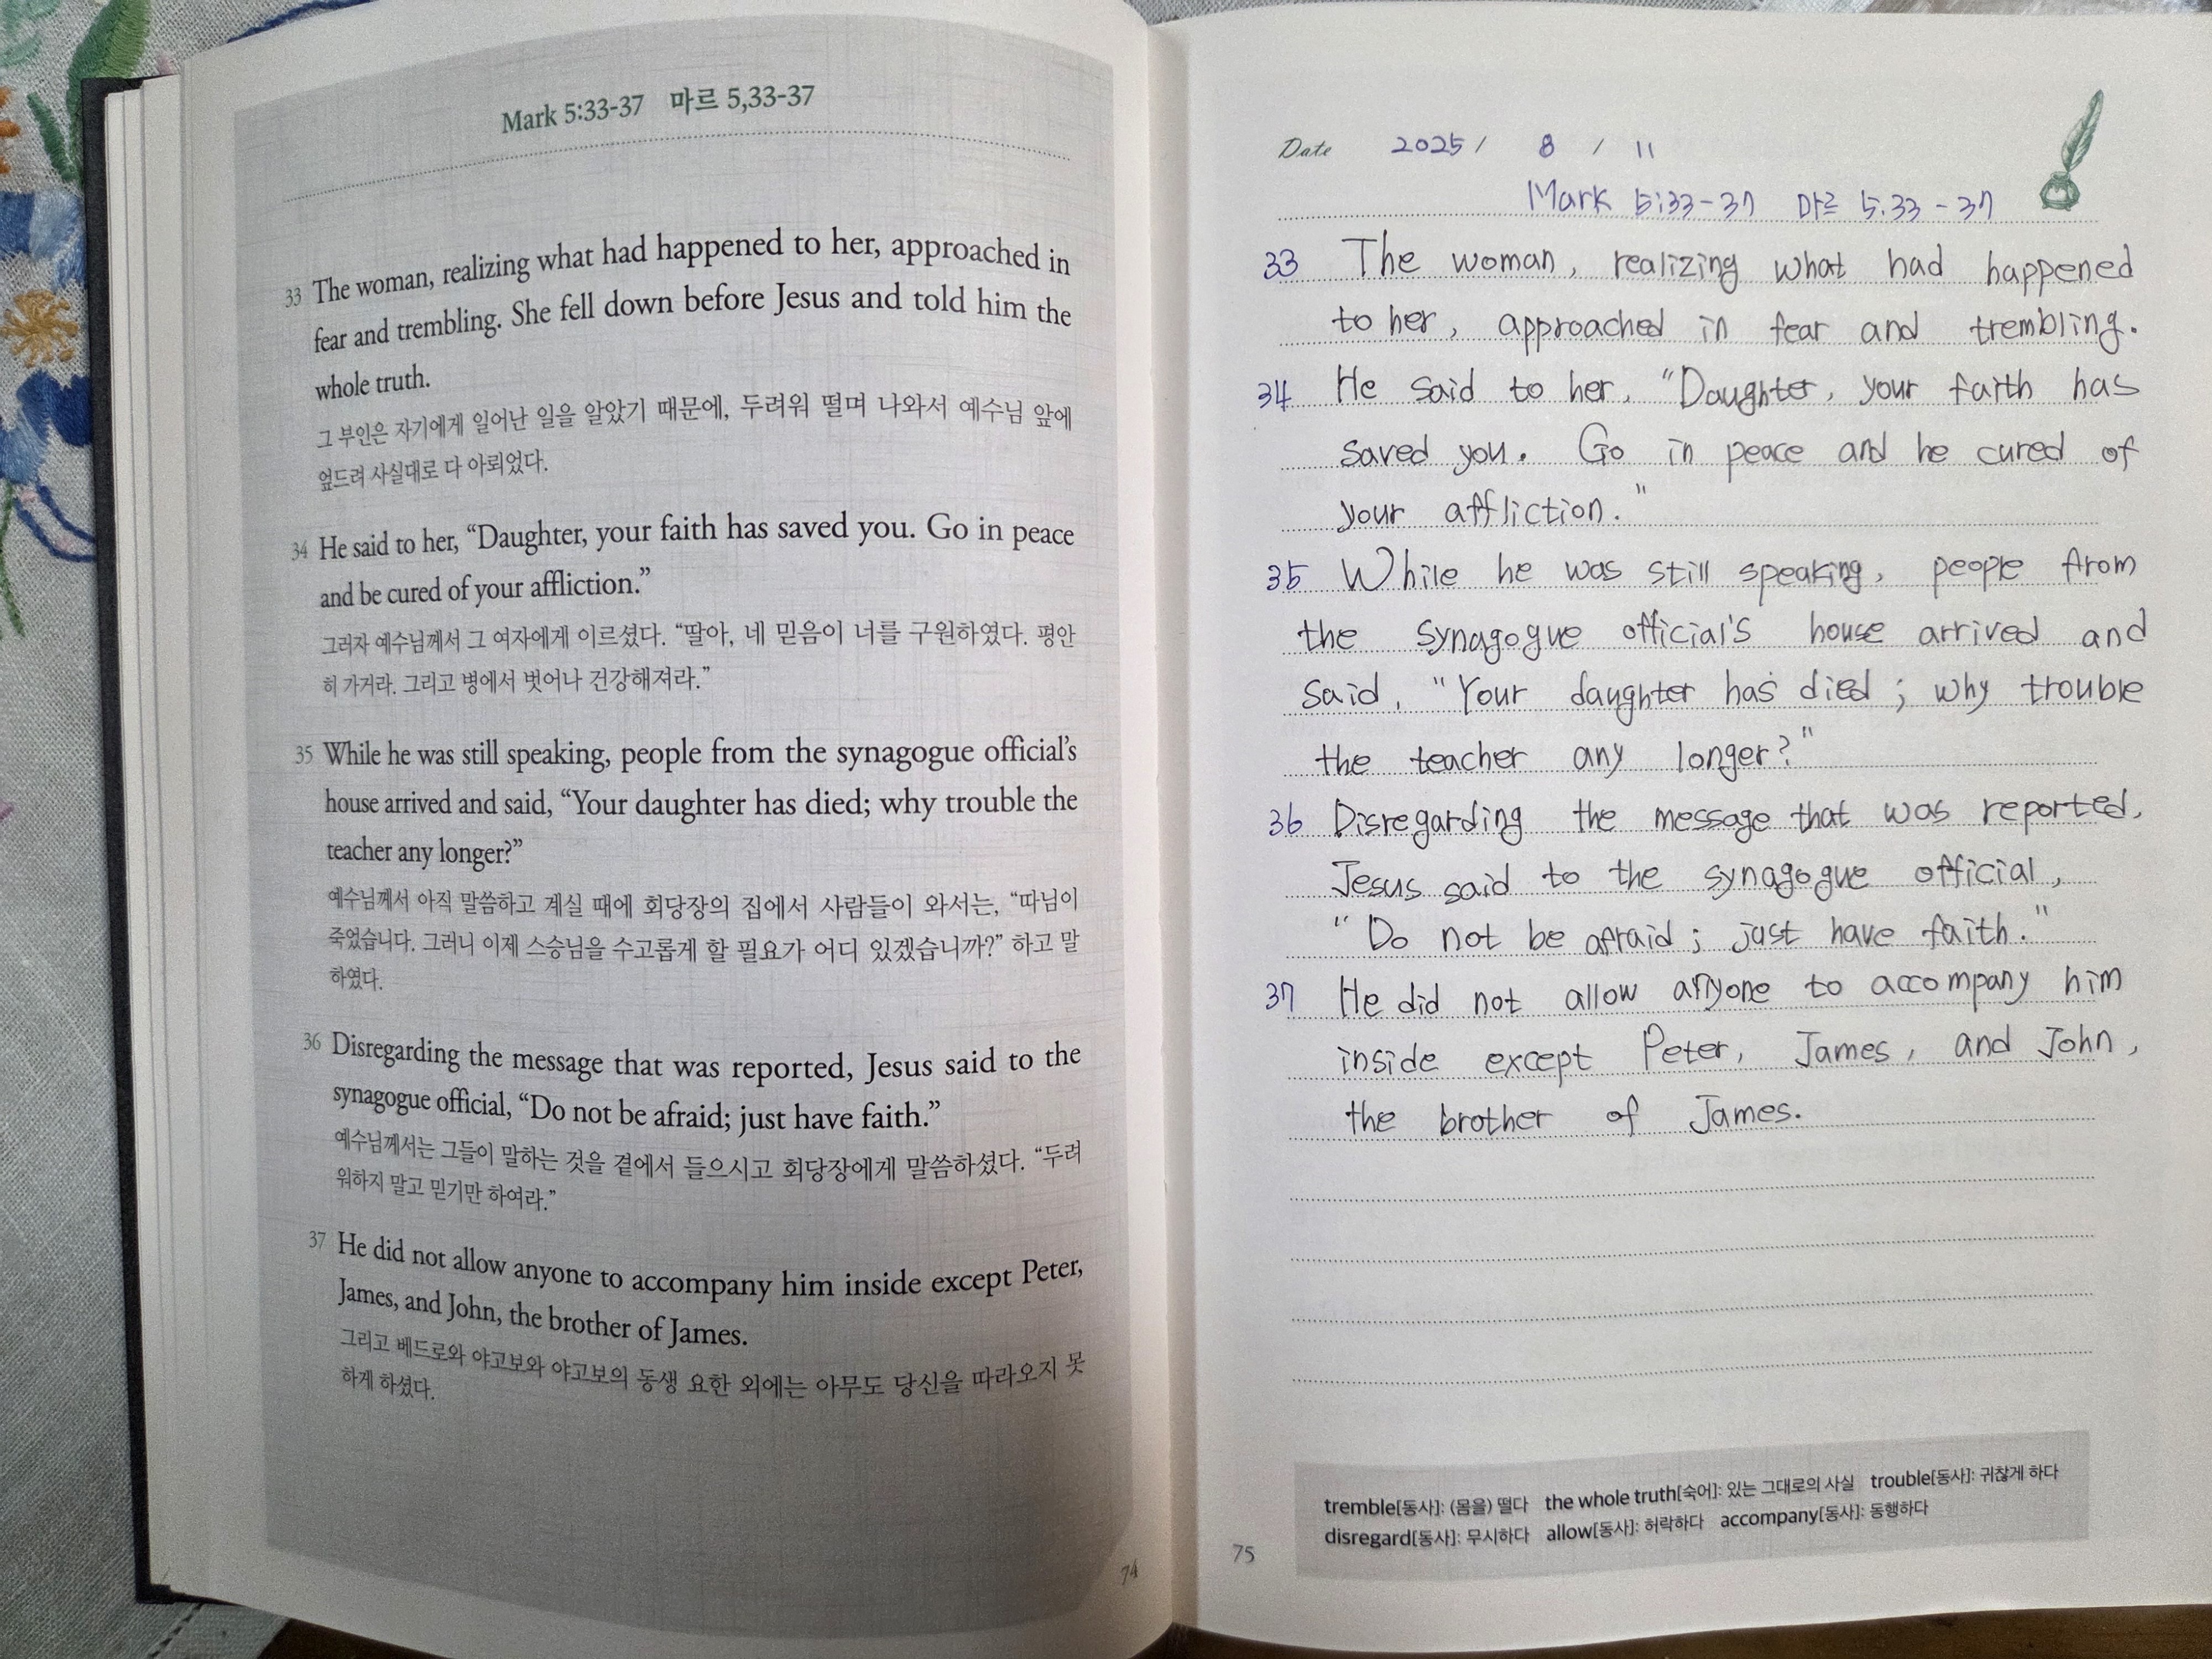 Mark 5:33-37 마르 5,33-37
33 The woman, realizing what had happened to her, approached in
fear and trembling. She fell down before Jesus and told him the
whole truth.
그 부인은 자기에게 일어난 일을 알았기 때문에, 두려워 떨며 나와서 예수님 앞에
엎드려 사실대로 다 아뢰었다.
34 He said to her, “Daughter, your faith has saved you. Go in peace
and be cured of your affliction.”
그러자 예수님께서 그 여자에게 이르셨다. “딸아, 네 믿음이 너를 구원하였다. 평안
히 가거라. 그리고 병에서 벗어나 건강해져라.”
35 While he was still speaking, people from the synagogue official’s
house arrived and said, “Your daughter has died; why trouble the
teacher any longer?”
예수님께서 아직 말씀하고 계실 때에 회당장의 집에서 사람들이 와서는, “따님이
죽었습니다. 그러니 이제 스승님을 수고롭게 할 필요가 어디 있겠습니까?” 하고 말
하였다.
36 Disregarding the message that was reported, Jesus said to the
synagogue official, “Do not be afraid; just have faith.”
예수님께서는 그들이 말하는 것을 곁에서 들으시고 회당장에게 말씀하셨다. “두려
워하지 말고 믿기만 하여라.”
37 He did not allow anyone to accompany him inside except Peter,
James, and John, the brother of James.
그리고 베드로와 야고보와 야고보의 동생 요한 외에는 아무도 당신을 따라오지 못
하게 하셨다.
74
Date 2025 / 8 / 11
Mark 5:33-37 마르 5.33-37
33 The woman, realizing what had happened
to her, approached in fear and trembling.
34 He said to her, “Daughter, your faith has
saved you. Go in peace and he cured of
your affliction."
35 While he was still speaking, people from
the synagogue official's house arrived and
said, "Your daughter has died; why trouble
the teacher any longer?"
36 Disregarding the message that was reported,
Jesus said to the synagogue official,
"Do not be afraid; just have faith."
37 He did not allow anyone to accompany him
inside except Peter, James, and John,
the brother of James.
tremble[동사]: (몸을) 떨다 the whole truth[숙어]: 있는 그대로의 사실 trouble[동사]: 귀찮게 하다
disregard[동사]: 무시하다 allow[동사]: 허락하다 accompany[동사]: 동행하다
75